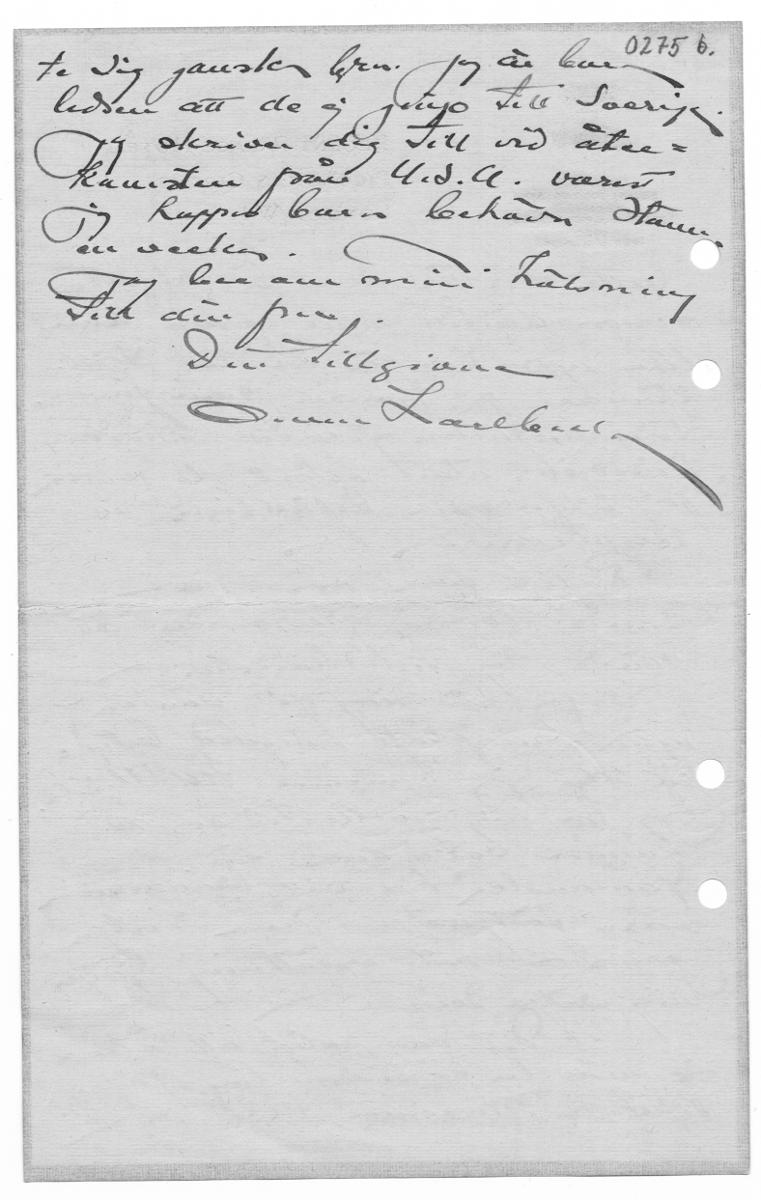 0275 b.
te sig ganska bra. Jag är bara
ledsen att de ej gingo till Sverige.
Jag skriver dig till vid åter=
komsten från U.S.A. varest
jag hoppas bara behöva stanna
en vecka.
Jag ber om min hälsning
till din fru.
Din tillgivne